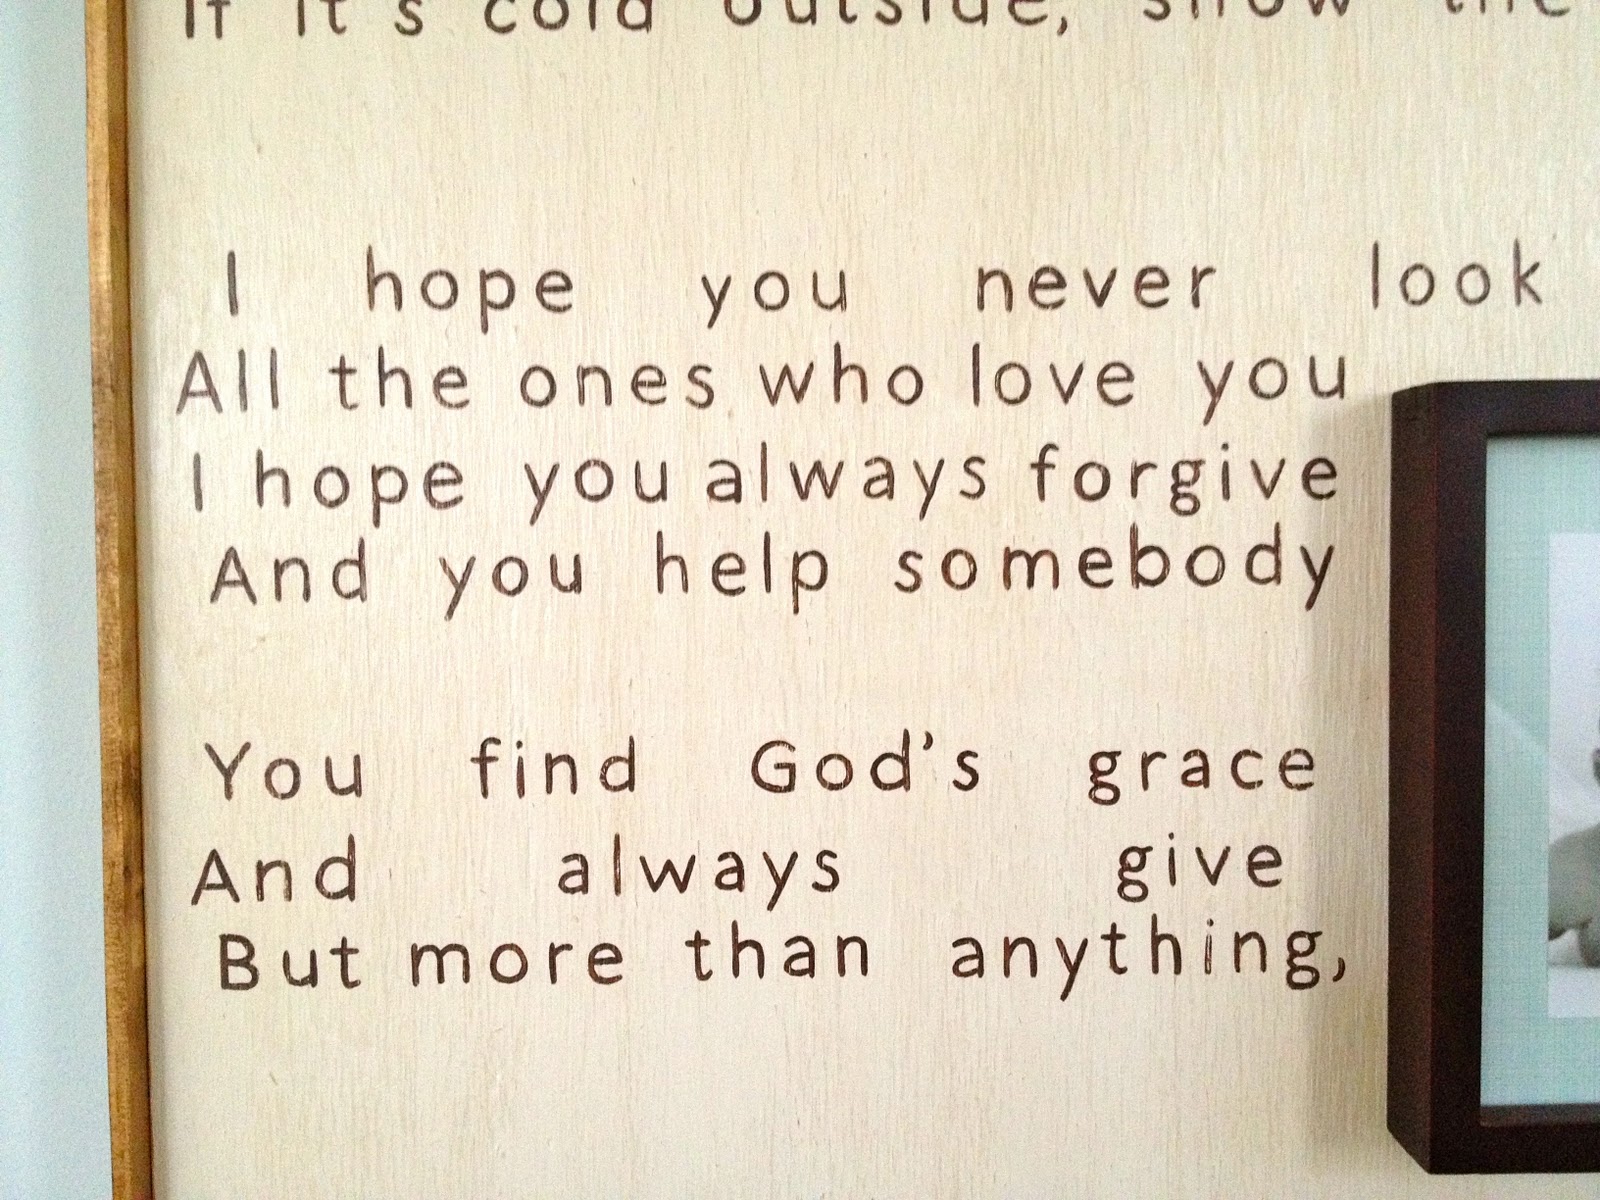 If it's cold outside, show the
I hope you never look
All the ones who love you
I hope you always forgive
And you help somebody
You find God's grace
And always give
But more than anything,